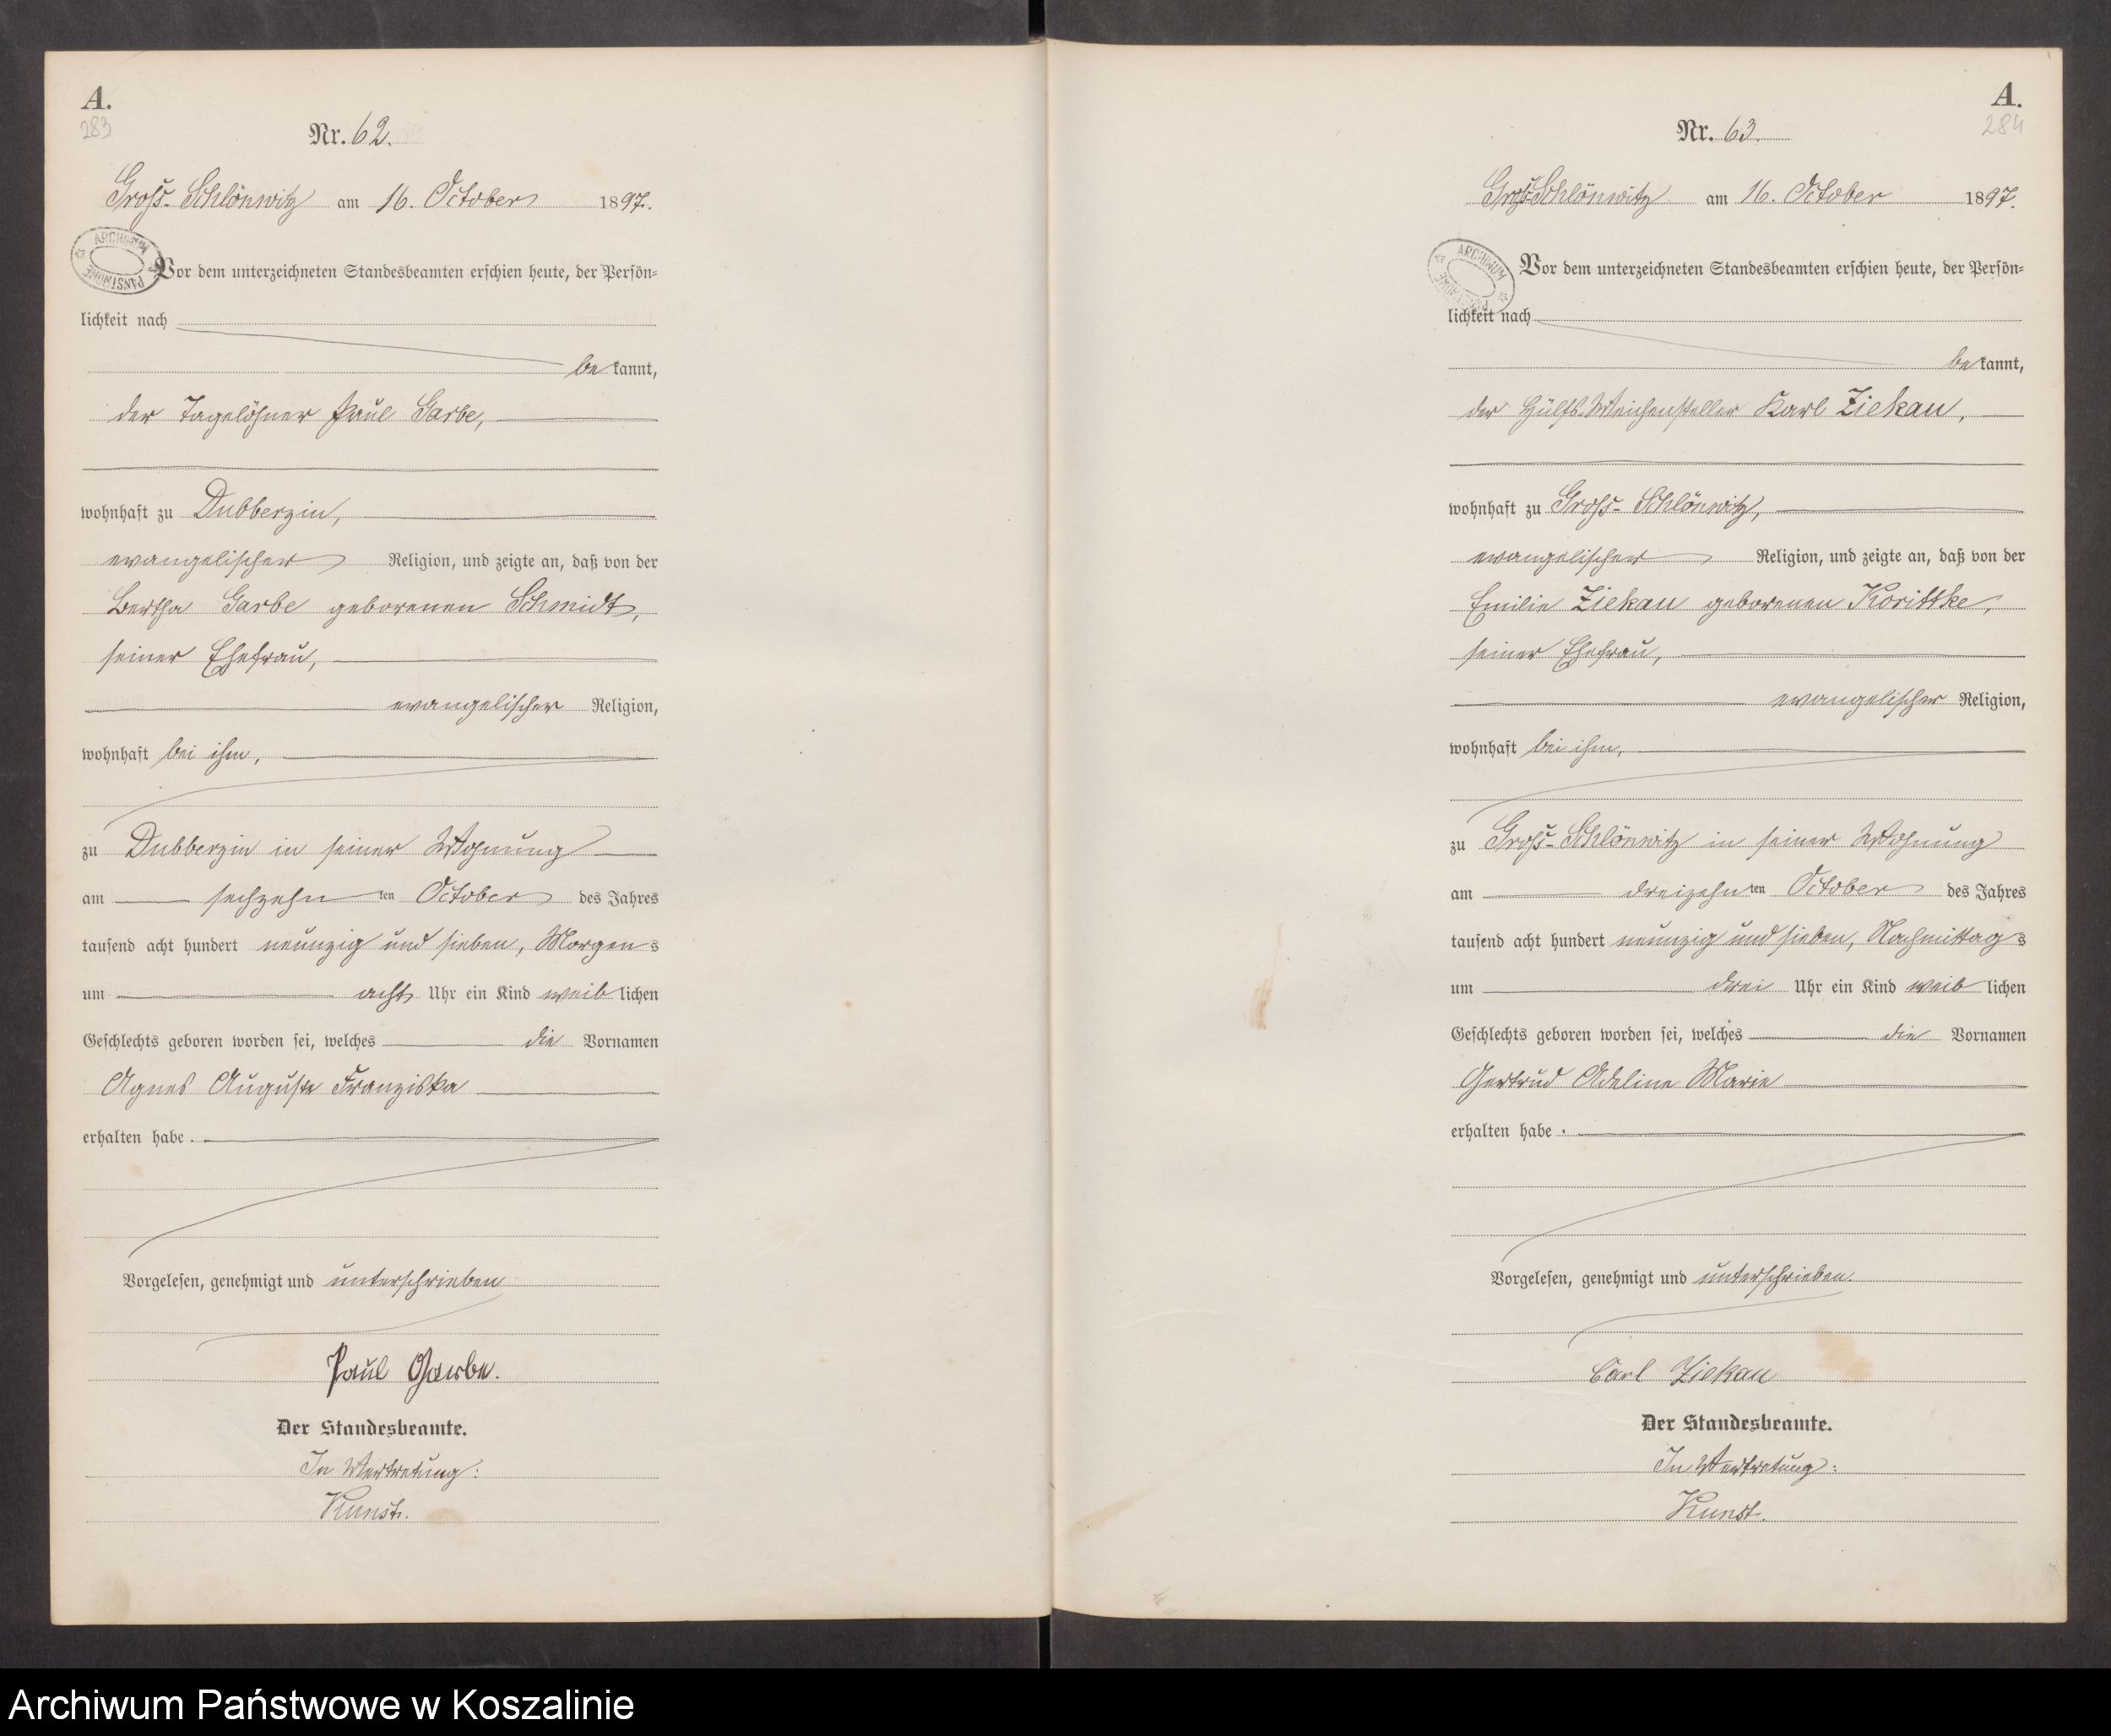 A.
283
Nr. 62.
Groß-Schlönwitz am 16. October 1897.
ARCHIWUM PAŃSTWOWE
Vor dem unterzeichneten Standesbeamten erschien heute, der Persön-
lichkeit nach
bekannt,
der Tagelöhner Paul Garbe,
wohnhaft zu Dubberzin,
evangelischer Religion, und zeigte an, daß von der
Bertha Garbe geborenen Schmidt,
seiner Ehefrau,
evangelischer Religion,
wohnhaft bei ihm,
zu Dubberzin in seiner Wohnung
am sechzehnten October des Jahres
tausend acht hundert neunzig und sieben, Morgens
um acht Uhr ein Kind weiblichen
Geschlechts geboren worden sei, welches die Vornamen
Agnes Auguste Franziska
erhalten habe.
Vorgelesen, genehmigt und unterschrieben
Paul Garbe.
Der Standesbeamte.
In Vertretung:
Kunst.
A.
284
Nr. 63.
Groß-Schlönwitz am 16. October 1897.
ARCHIWUM PAŃSTWOWE
Vor dem unterzeichneten Standesbeamten erschien heute, der Persön-
lichkeit nach
bekannt,
der Hülfs-Weichensteller Karl Ziekau,
wohnhaft zu Groß-Schlönwitz,
evangelischer Religion, und zeigte an, daß von der
Emilie Ziekau geborenen Korittke,
seiner Ehefrau,
evangelischer Religion,
wohnhaft bei ihm,
zu Groß-Schlönwitz in seiner Wohnung
am dreizehnten October des Jahres
tausend acht hundert neunzig und sieben, Nachmittags
um drei Uhr ein Kind weiblichen
Geschlechts geboren worden sei, welches die Vornamen
Gertrud Adeline Marie
erhalten habe.
Vorgelesen, genehmigt und unterschrieben.
Carl Ziekau
Der Standesbeamte.
In Vertretung:
Kunst.
Archiwum Państwowe w Koszalinie